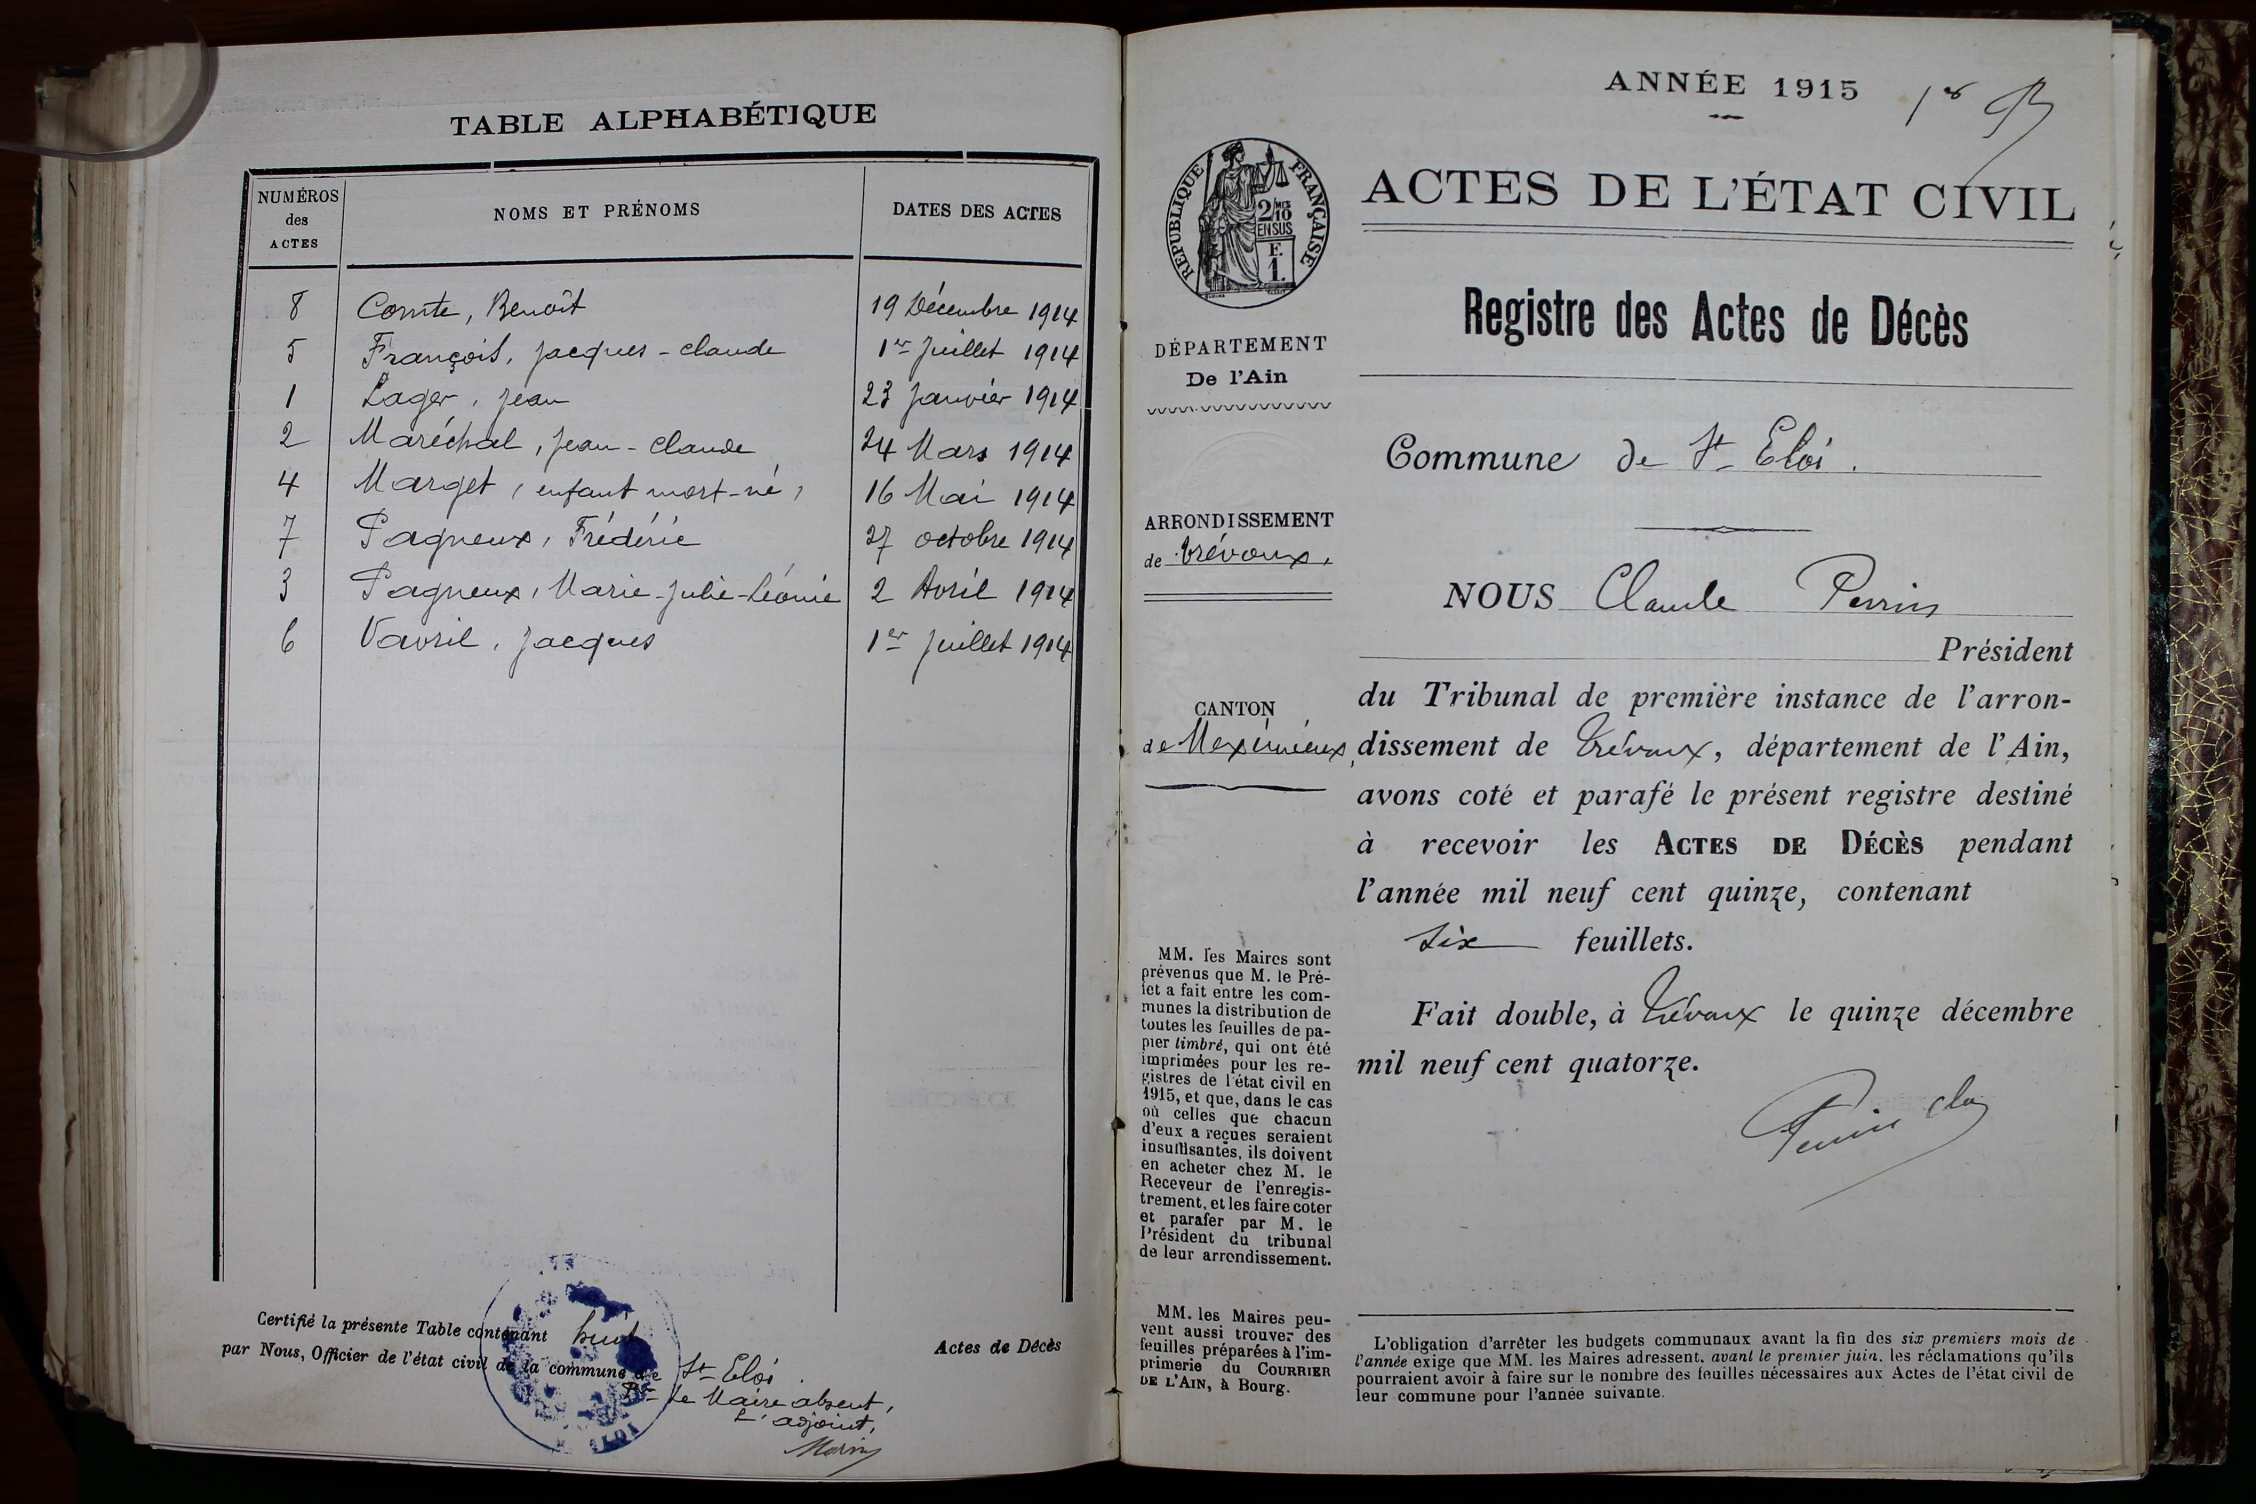 TABLE ALPHABÉTIQUE
NUMÉROS des ACTES
NOMS ET PRÉNOMS
DATES DES ACTES
8 Comte, Benoît 19 Décembre 1914
5 François, Jacques-Claude 1er Juillet 1914
1 Lager, Jean 23 Janvier 1914
2 Maréchal, Jean-Claude 24 Mars 1914
4 Marget (enfant mort-né) 16 Mai 1914
7 Pagneux, Frédéric 27 octobre 1914
3 Pagneux, Marie-Julie-Léonie 2 Avril 1914
6 Vavril, Jacques 1er Juillet 1914
Certifié la présente Table contenant huit Actes de Décès
par Nous, Officier de l'état civil de la commune de St Eloi.
Pr Le Maire absent,
L'adjoint,
Morin
ANNÉE 1915
1er
ACTES DE L'ÉTAT CIVIL
REPUBLIQUE FRANÇAISE
2/10
EN SUS
F.
1.
Registre des Actes de Décès
DÉPARTEMENT
De l'Ain
Commune de St Eloi.
ARRONDISSEMENT
de Trévoux,
CANTON
de Meximieux,
NOUS Claude Perrin
Président
du Tribunal de première instance de l'arron-
dissement de Trévoux, département de l'Ain,
avons coté et parafé le présent registre destiné
à recevoir les ACTES DE DÉCÈS pendant
l'année mil neuf cent quinze, contenant
six feuillets.
Fait double, à Trévoux le quinze décembre
mil neuf cent quatorze.
Perrin Cla
MM. les Maires sont
prévenus que M. le Pré-
fet a fait entre les com-
munes la distribution de
toutes les feuilles de pa-
pier timbré, qui ont été
imprimées pour les re-
gistres de l'état civil en
1915, et que, dans le cas
où celles que chacun
d'eux a reçues seraient
insuffisantes, ils doivent
en acheter chez M. le
Receveur de l'enregis-
trement, et les faire coter
et parafer par M. le
Président du tribunal
de leur arrondissement.
MM. les Maires peu-
vent aussi trouver des
feuilles préparées à l'im-
primerie du COURRIER
DE L'AIN, à Bourg.
L'obligation d'arrêter les budgets communaux avant la fin des six premiers mois de
l'année exige que MM. les Maires adressent, avant le premier juin, les réclamations qu'ils
pourraient avoir à faire sur le nombre des feuilles nécessaires aux Actes de l'état civil de
leur commune pour l'année suivante.